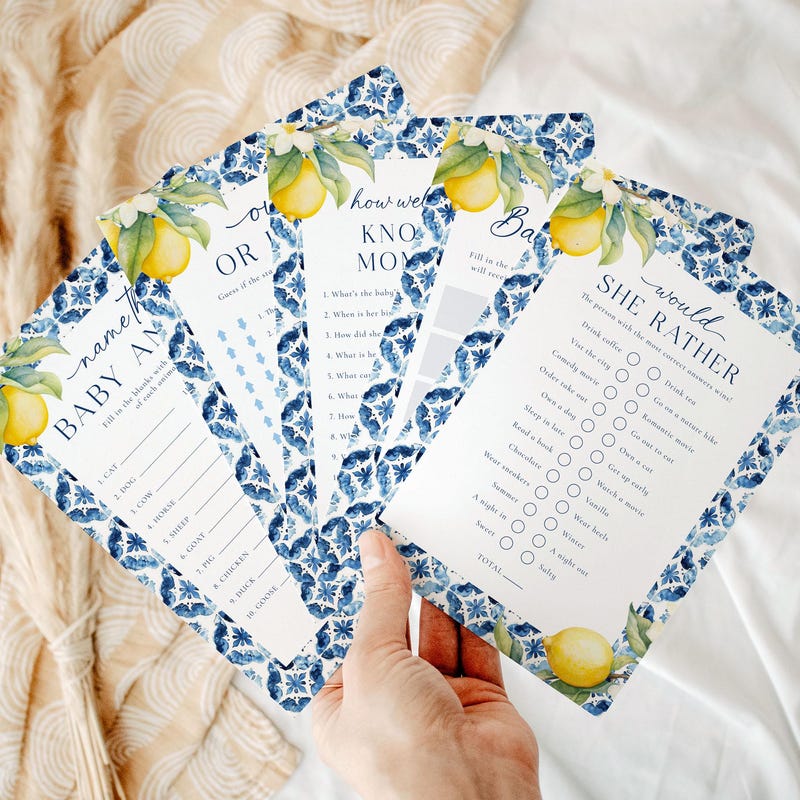 name th
BABY AN
Fill in the blanks with
of each anima
1. CAT
2. DOG
3. COW
4. HORSE
5. SHEEP
6. GOAT
7. PIG
8. CHICKEN
9. DUCK
10. GOOSE
OR
Guess if the sta
1. Th
how wel
KNO
MOM
1. What's the baby'
2. When is her bis
3. How did she
4. What is he
5. What co
6. What
7. How
8. Wh
Ba
Fill in the
will recei
would
SHE RATHER
The person with the most correct answers wins!
Drink coffee Drink tea
Visc the city Go on a nature hike
Comedy movie Romantic movie
Order take out Go out to eat
Own a dog Own a cat
Sleep in late Get up early
Read a book Watch a movie
Chocolate Vanilla
Wear sneakers Wear heels
Summer Winter
A night in A night out
Sweet Salty
TOTAL